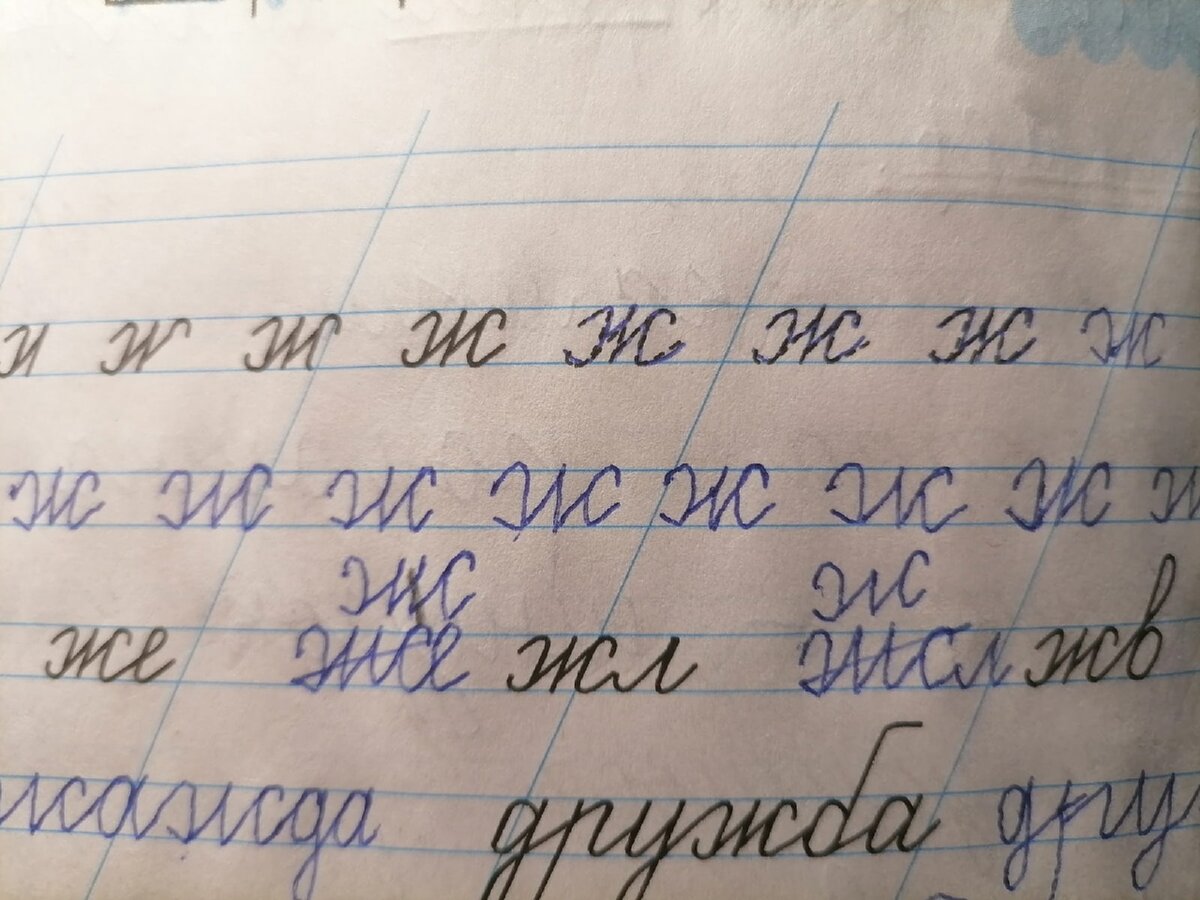 ж ж ж ж ж ж ж
ж ж ж ж ж ж ж
ж ж
же же жл жл жв
жажда дружба дру